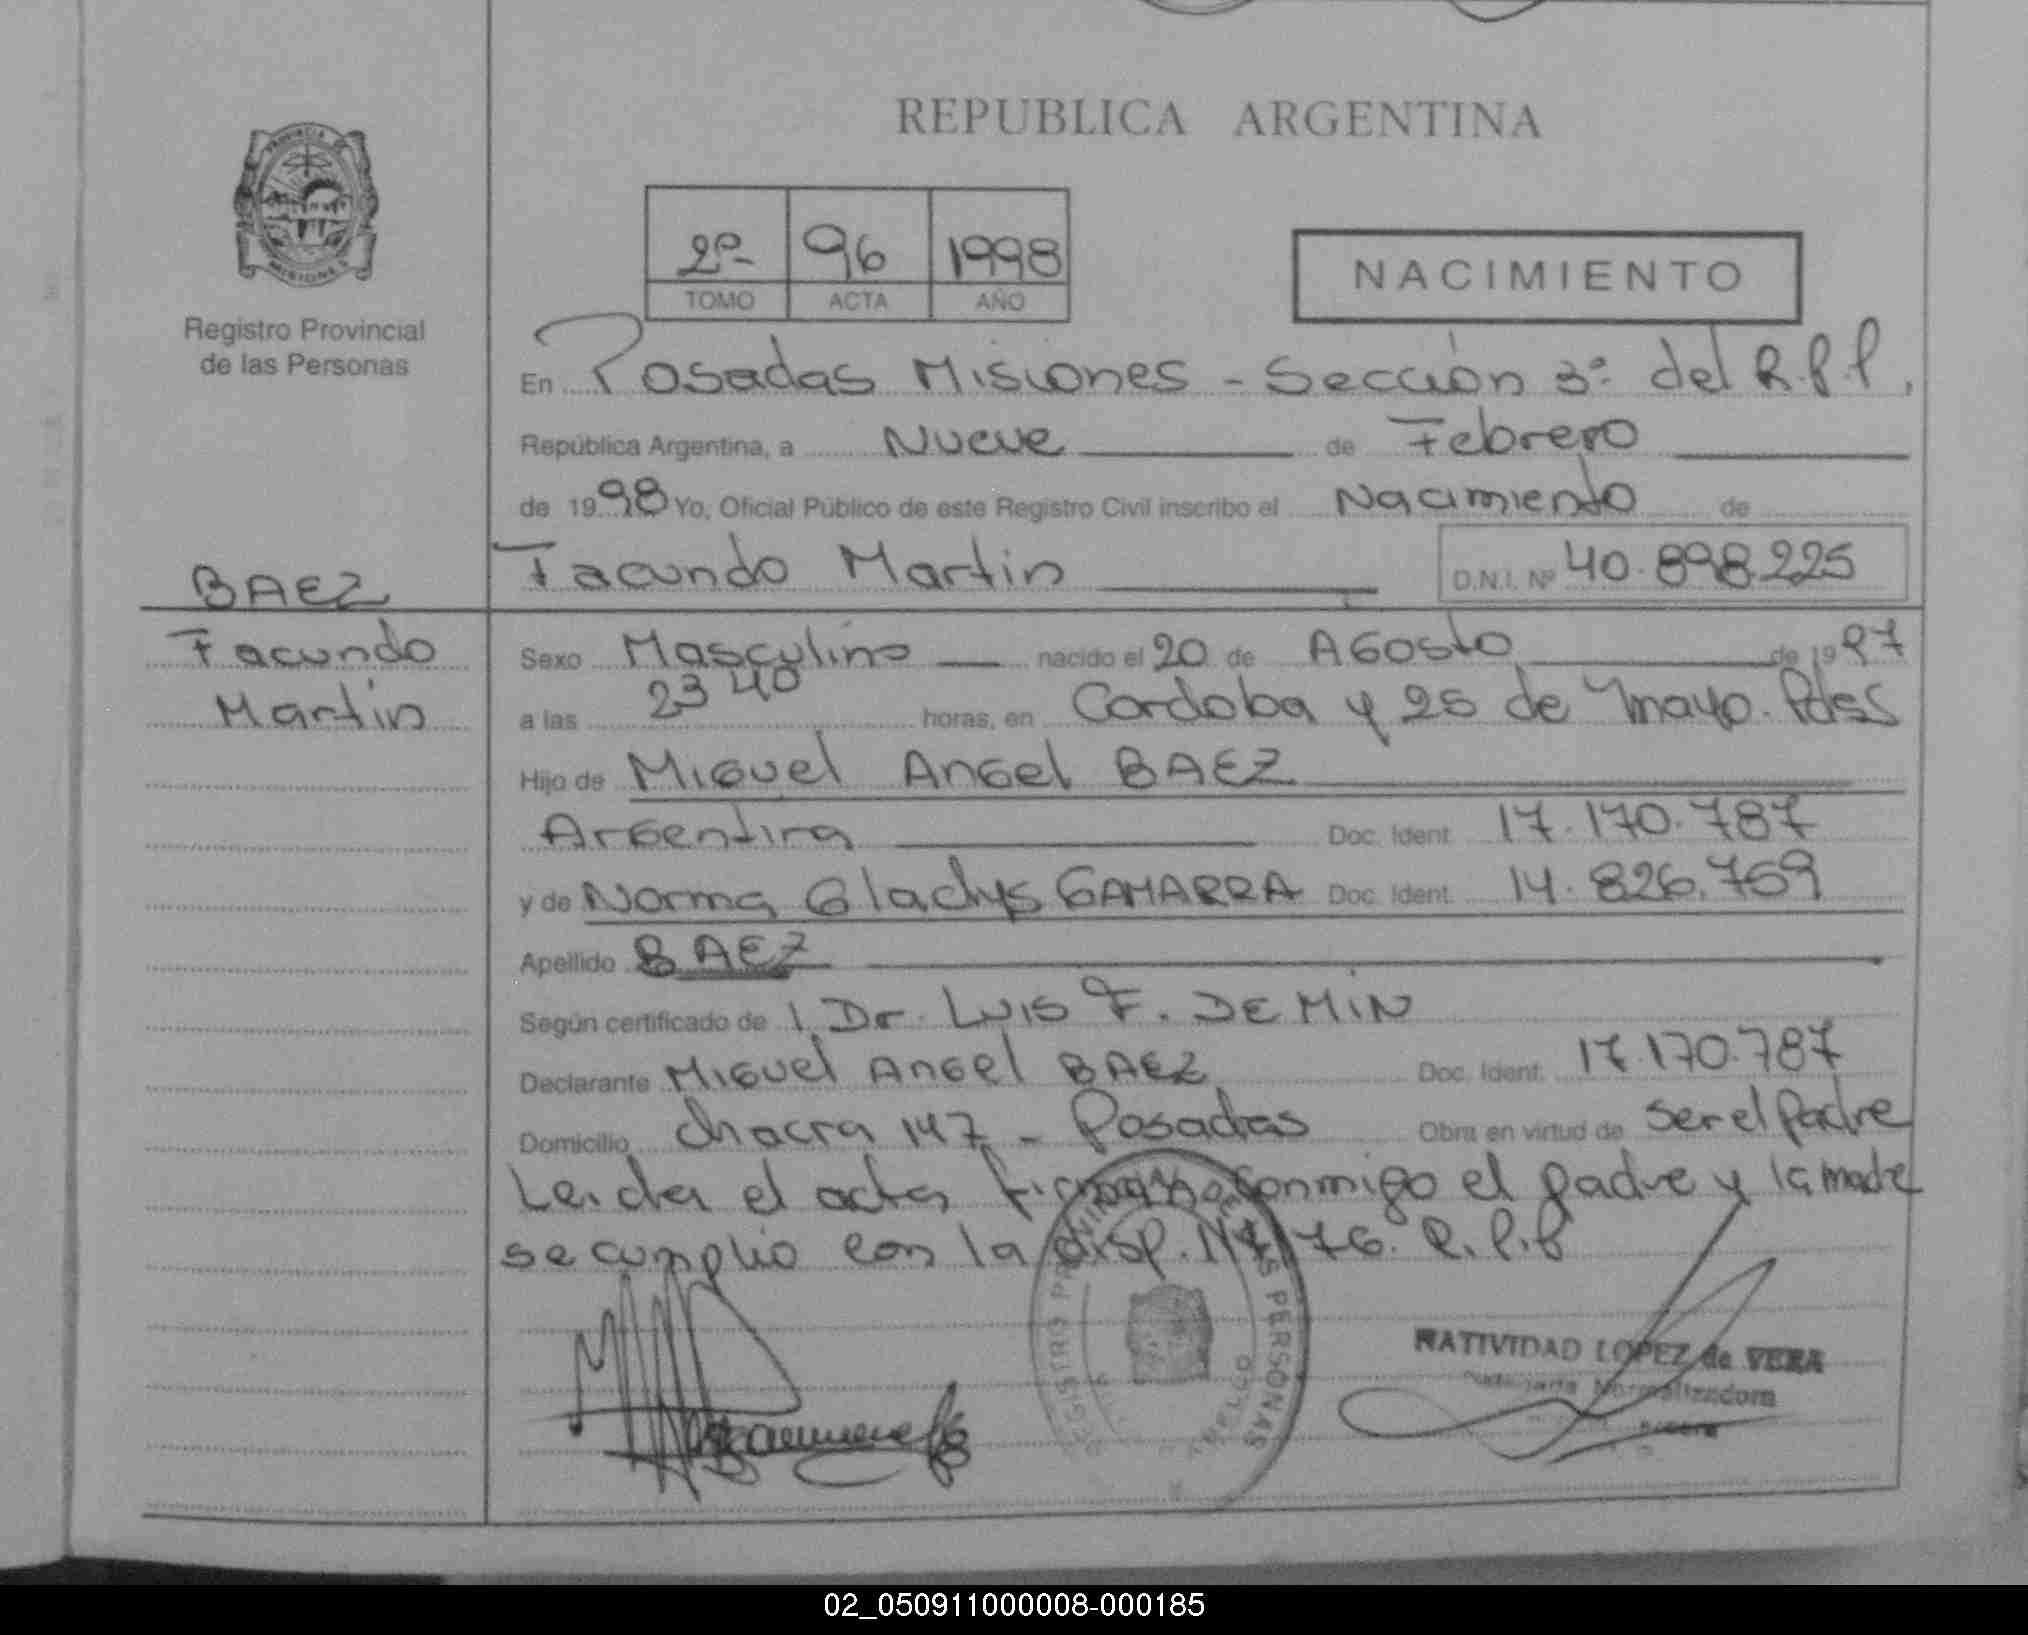 REPUBLICA ARGENTINA
PROVINCIA DE
MISIONES
Registro Provincial
de las Personas
2º 96 1998
TOMO ACTA AÑO
NACIMIENTO
En Posadas Misiones - Sección 3º del R.P.P.
República Argentina, a Nueve de Febrero
de 1998 Yo, Oficial Público de este Registro Civil inscribo el Nacimiento de
Facundo Martin D.N.I. Nº 40.898.225
BAEZ
Facundo
Martin
Sexo Masculino nacido el 20 de AGosto de 1997
a las 23 40 horas, en Cordoba y 25 de mayo. Pdas
Hijo de MiGuel AnGel BAEZ
ArGentina Doc. Ident. 17.170.787
y de Norma Gladys GAMARRA Doc. Ident. 14.826.769
Apellido BAEZ
Según certificado de Dr. LUIS F. DE MIN
Declarante MiGuel AnGel BAEZ Doc. Ident. 17.170.787
Domicilio chacra 147 - Posadas Obra en virtud de ser el padre
Leida el acta firman conmigo el padre y la madre
se cumplio con la disp. Nº 76. R.P.P
REGISTRO PROVINCIAL DE LAS PERSONAS
NATIVIDAD LOPEZ de VERA
Normalizadora
02_050911000008-000185